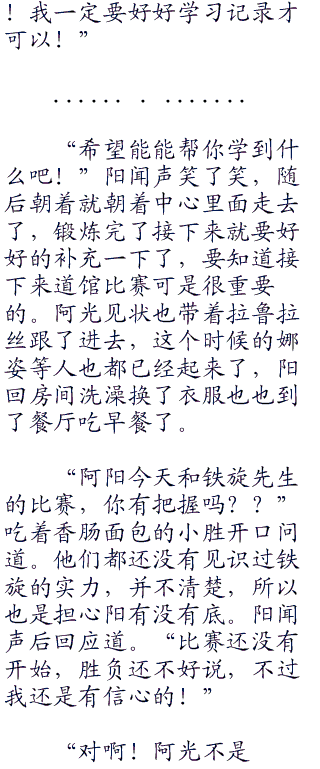 ！我一定要好好学习记录才
可以！”
······ · ·······
“希望能能帮你学到什
么吧！”阳闻声笑了笑，随
后朝着就朝着中心里面走去
了，锻炼完了接下来就要好
好的补充一下了，要知道接
下来道馆比赛可是很重要
的。阿光见状也带着拉鲁拉
丝跟了进去，这个时候的娜
姿等人也都已经起来了，阳
回房间洗澡换了衣服也也到
了餐厅吃早餐了。
“阿阳今天和铁旋先生
的比赛，你有把握吗？？”
吃着香肠面包的小胜开口问
道。他们都还没有见识过铁
旋的实力，并不清楚，所以
也是担心阳有没有底。阳闻
声后回应道。“比赛还没有
开始，胜负还不好说，不过
我还是有信心的！”
“对啊！阿光不是